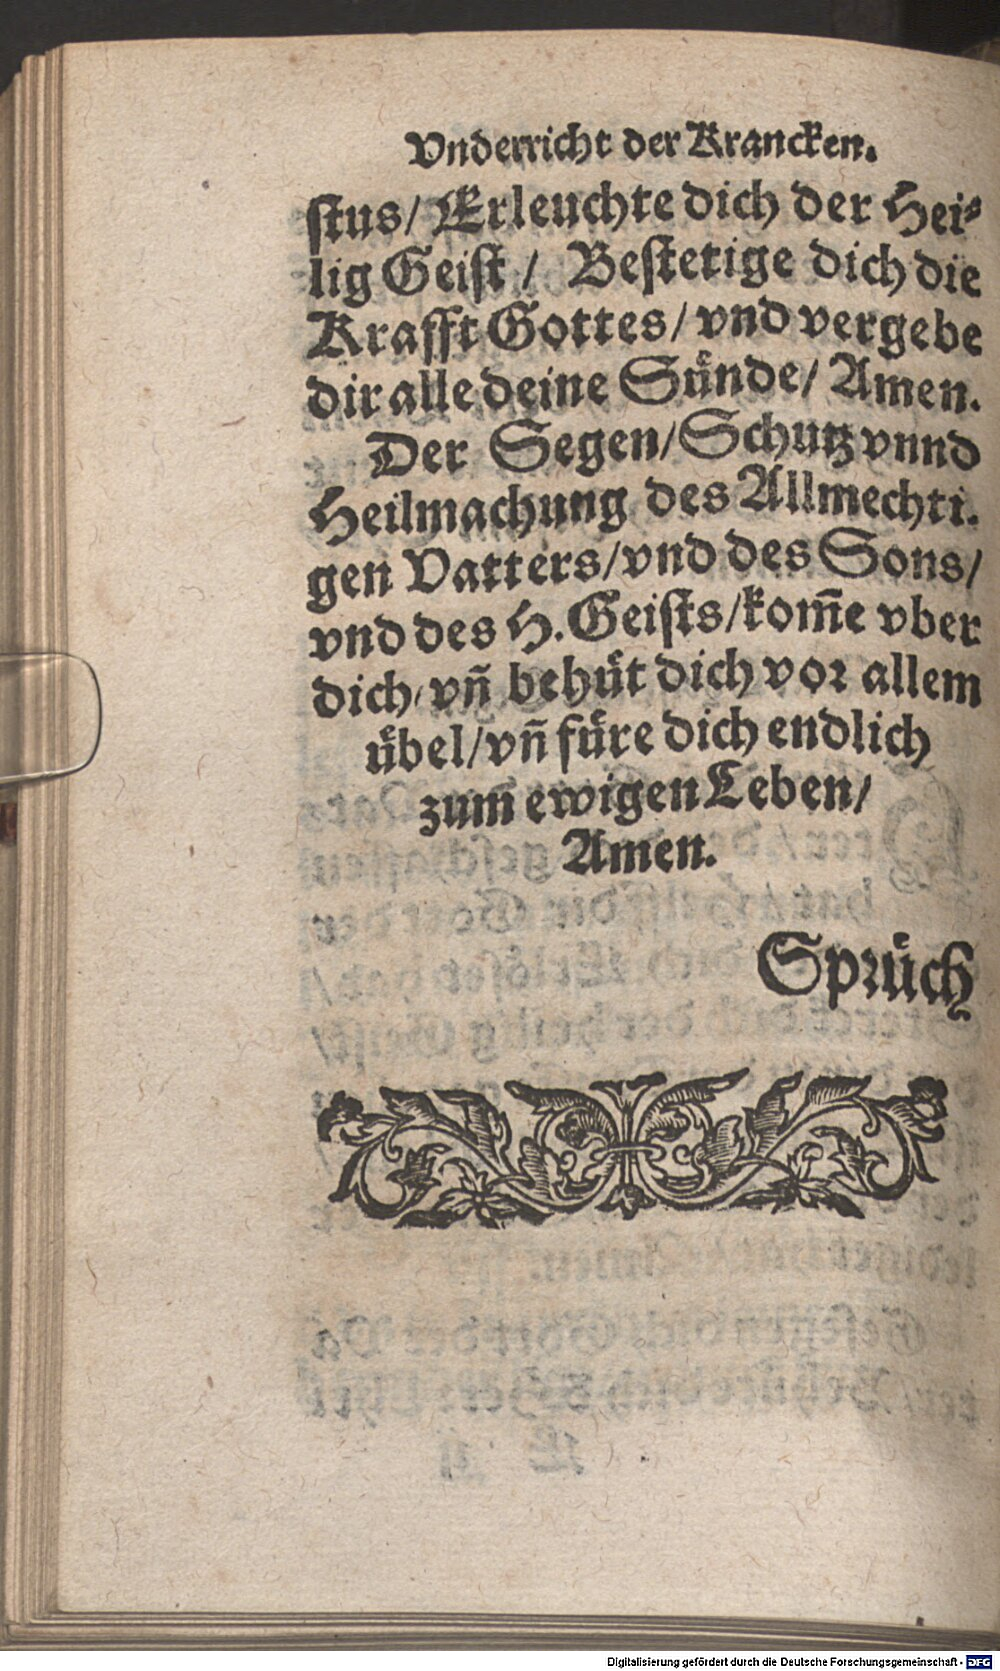 Vnderricht der Krancken.
stus/ Erleuchte dich der Hei⸗
lig Geist / Bestetige dich die
Krafft Gottes/ vnd vergebe
dir alle deine Suͤnde/ Amen.
Der Segen/ Schutz vnnd
Heilmachung des Allmechti.
gen Vatters/ vnd des Sons/
vnd des H. Geists/ kom̄e vber
dich/ vn̄ behuͤt dich vor allem
uͤbel/ vn̄ fuͤre dich endlich
zum ewigen Leben/
Amen.
Spruͤch
Digitalisierung gefördert durch die Deutsche Forschungsgemeinschaft - DFG